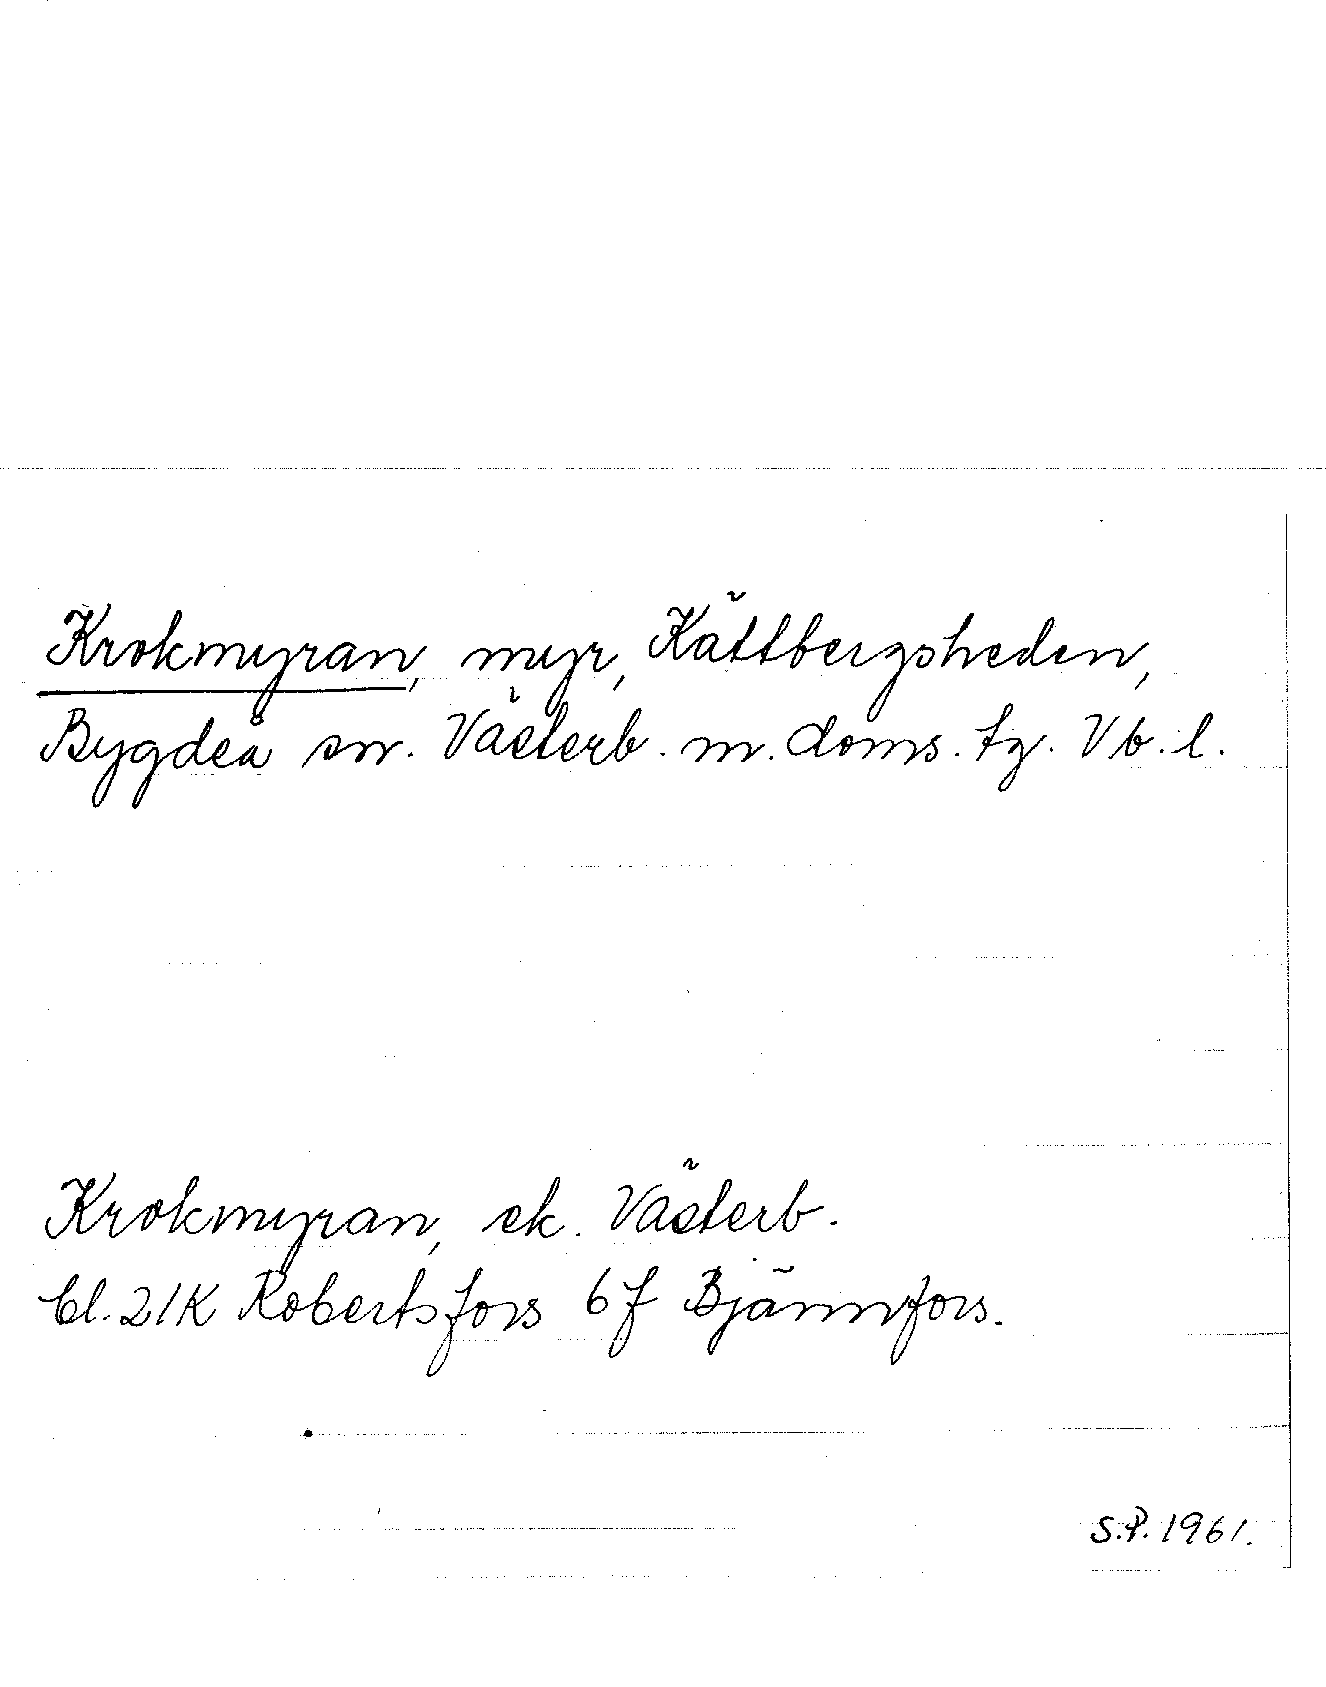 Krokmyran, myr, Kättbergsheden,
Bygdeå sn. Västerb. m. doms. tg. Vb. l.
Krokmyran, ek. Västerb.
bl. 21K Robertsfors 6f Bjännfors.
S.P. 1961.